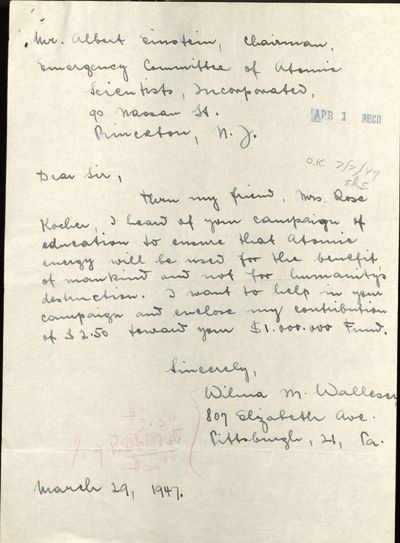 Mr. Albert Einstein, Chairman,
Emergency Committee of Atomic
Scientists, Incorporated,
90 Nassau St.
Princeton, N. J.
APR 1 RECD
O.K. 7/7/49
Dear Sir,
Thru my friend, Mrs. Rose
Kocher, I heard of your campaign of
education to ensure that atomic
energy will be used for the benefit
of mankind and not for humanity's
destruction. I want to help in your
campaign and enclose my contribution
of $2.50 toward your $1.000.000 Fund.
Sincerely,
Wilma M. Wallesen
807 Elizabeth Ave.
Pittsburgh, 21, Pa.
$2.50
March 29, 1947.